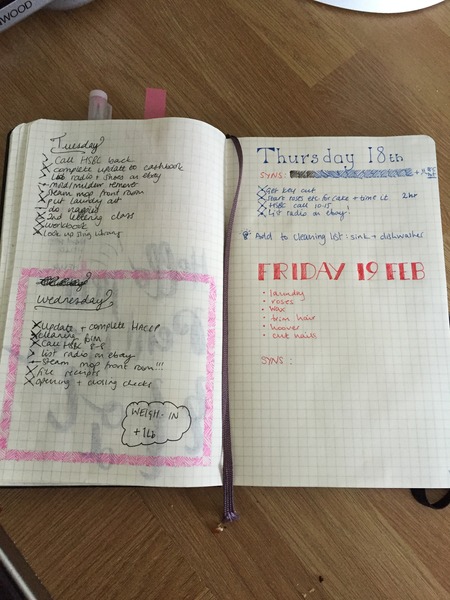 NWOOD
Tuesday
Call HSBC back
complete update to cashbook
list radio + shoes on ebay
mould/mildew remover
steam mop front room
put laundry out
do nappies
2nd lettering class
workbook
Look up sling library
Wednesday
update + complete HACCP
cleaning
Call HSBC 8-8
list radio on ebay
steam mop front room!!!
file receipts
opening + closing checks
WEIGH-IN
+1lb
Thursday 18th
SYNS:
Get key cut
Start roses etc for cake + time it 2hr
HSBC call 10.15
List radio on ebay
Add to cleaning list: sink + dishwasher
FRIDAY 19 FEB
• laundry
• roses
• wax
• trim hair
• hoover
• cut nails
SYNS: